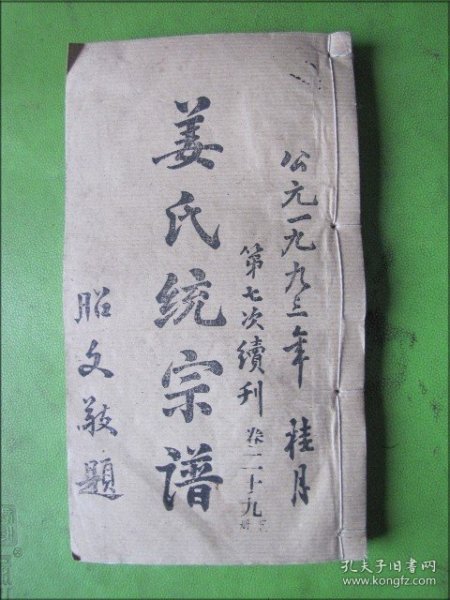 公元一九九三年 桂月
第七次續刊 卷二十九
姜氏统宗谱
昭文敬題
孔夫子旧书网
www.kongfz.com